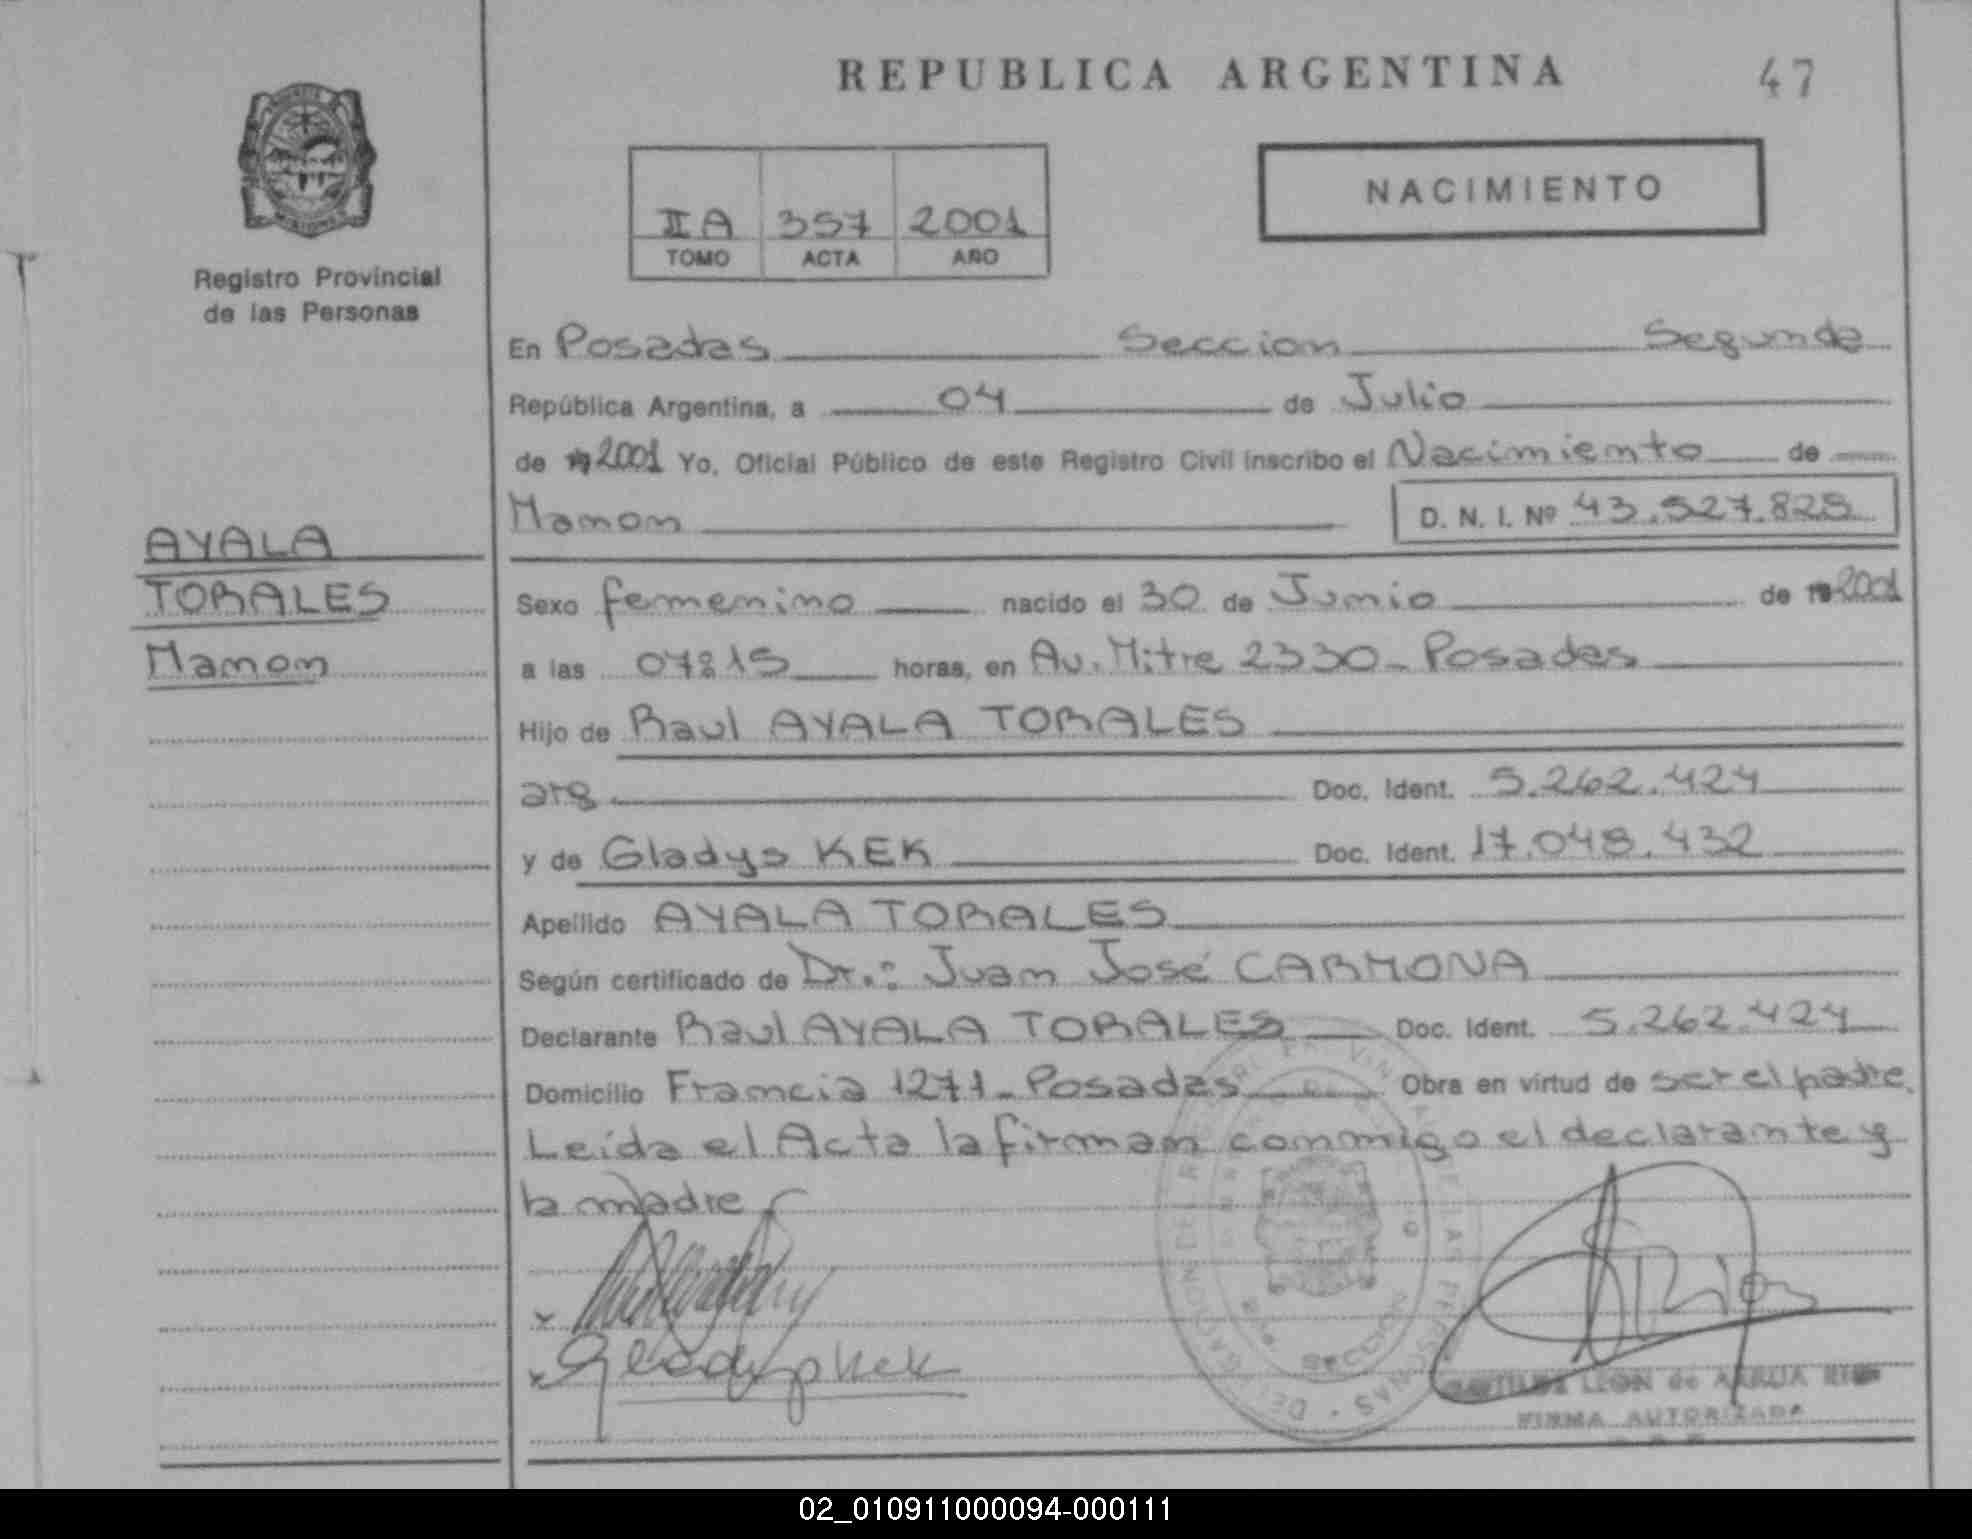 REPUBLICA ARGENTINA
47
NACIMIENTO
IIA 357 2001
TOMO ACTA AÑO
Registro Provincial
de las Personas
En Posadas Seccion Segunda
República Argentina, a 04 de Julio
de 19 2001 Yo, Oficial Público de este Registro Civil inscribo el Nacimiento de
Manon
D. N. I. Nº 43.527.828
AYALA
TORALES
Manon
Sexo femenino nacido el 30 de Junio de 19 2001
a las 07:15 horas, en Av. Mitre 2330 - Posadas
Hijo de Raul AYALA TORALES
arg Doc. Ident. 5.262.424
y de Gladys KEK Doc. Ident. 17.048.432
Apellido AYALA TORALES
Según certificado de Dr.: Juan José CARMONA
Declarante Raul AYALA TORALES Doc. Ident. 5.262.424
Domicilio Francia 1271 - Posadas Obra en virtud de ser el padre.
Leída el Acta la firman conmigo el declarante y
la madre
Gladys Kek
LEON de ARRUA
FIRMA AUTORIZADA
02_010911000094-000111